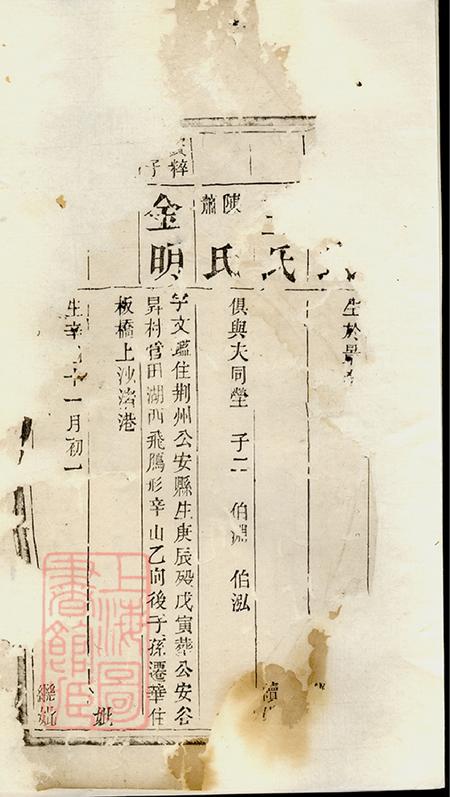 生於
氏
續
陳
蕭
氏
俱與夫同塋 子二 伯淵 伯泓
粹
子
金明
字文蘊住荆州公安縣生庚辰歿戊寅葬公安谷
昇村官田湖西飛鴈形辛山乙向後子孫遷華住
板橋上沙濟港
妣
生辛 十一月初一
繼妣
上海圖
書館藏